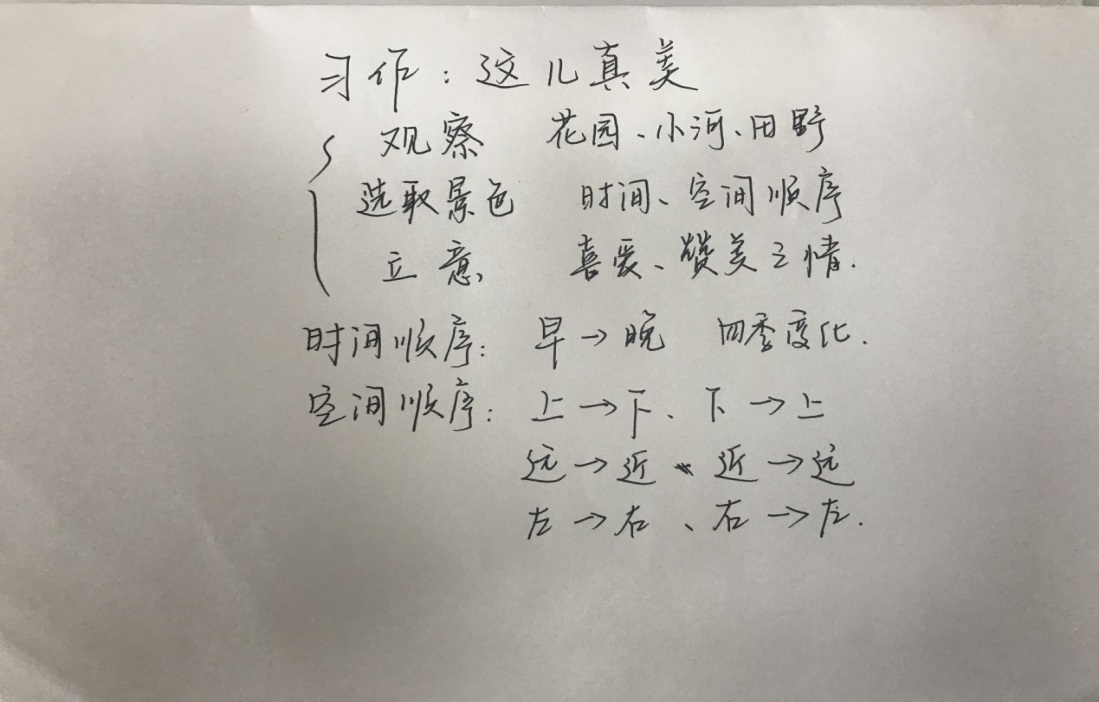 习作：这儿真美
观察 花园、小河、田野
选取景色 时间、空间顺序
立意 喜爱、赞美之情.
时间顺序：早→晚 四季变化.
空间顺序：上→下、下→上
远→近、近→远
左→右、右→左.